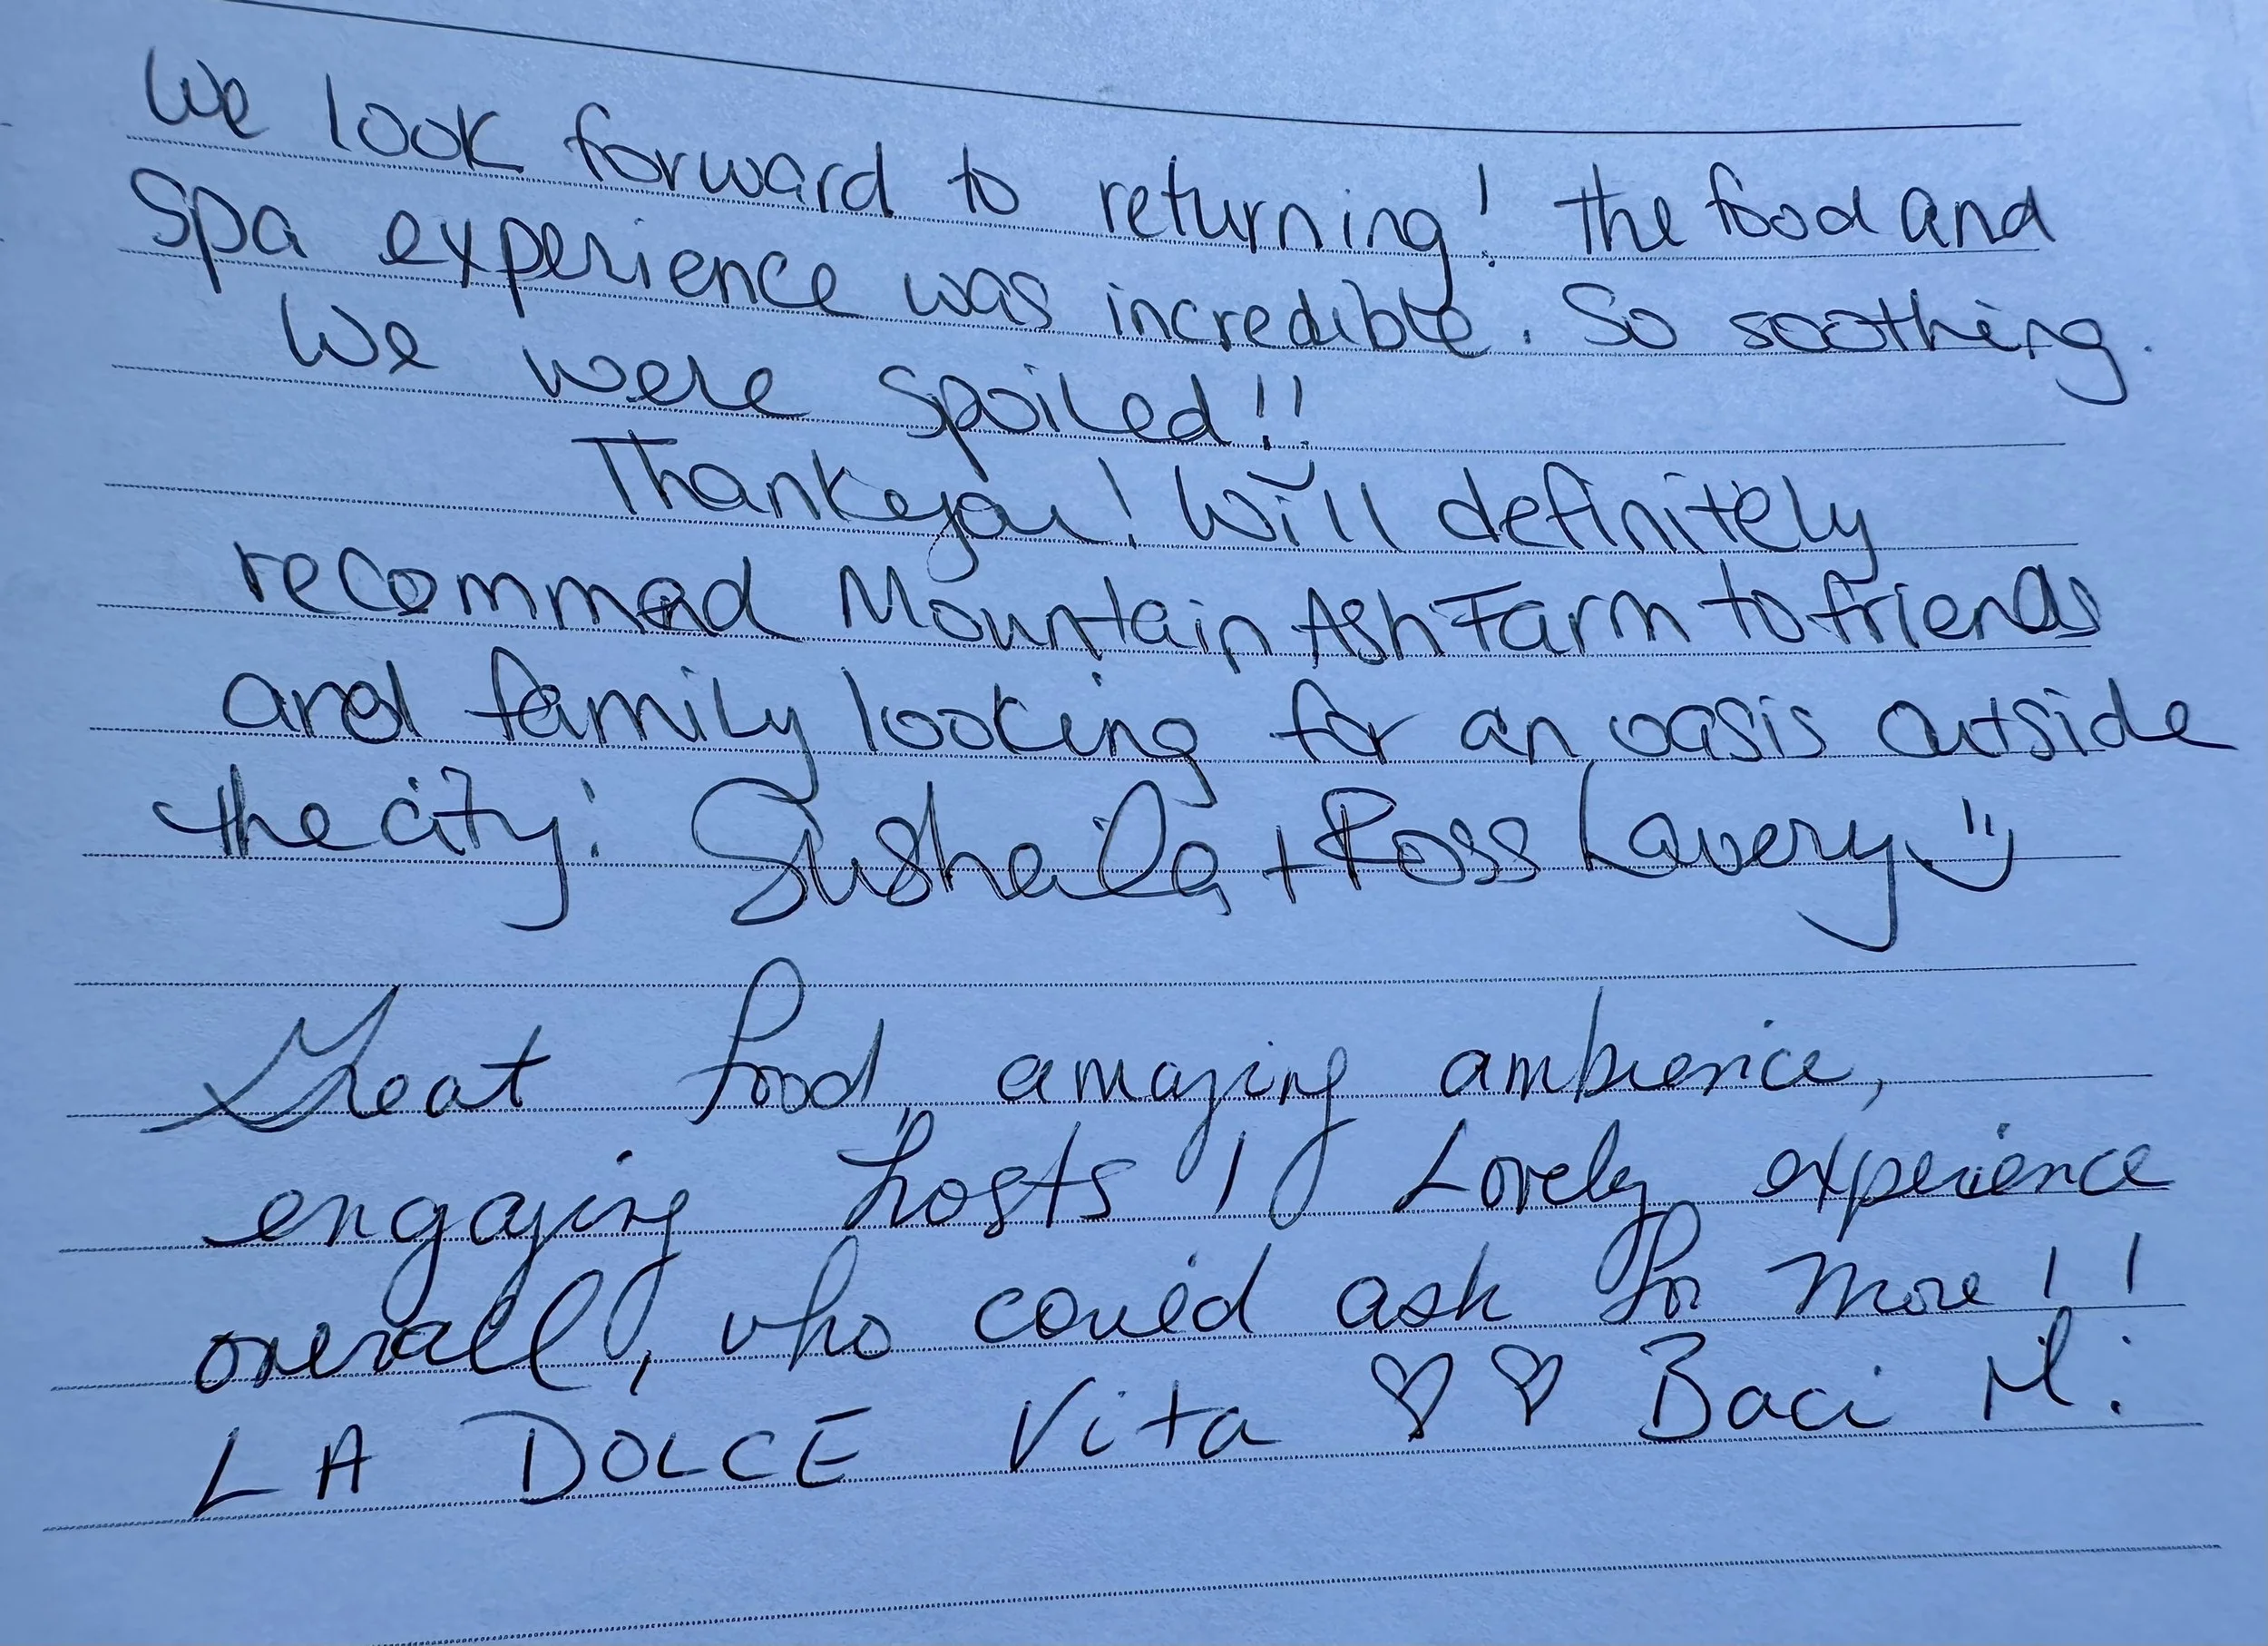 We look forward to returning! the food and
Spa experience was incredible. So soothing.
We were spoiled!!
Thankyou! Will definitely
recommend Mountain Ash Farm to friends
and family looking for an oasis outside
the city! Susheila + Ross Lavery
Great food, amazing ambience,
engaging hosts! Lovely experience
overall, who could ask for more!!
LA DOLCE Vita ♡ ♡ Baci M.